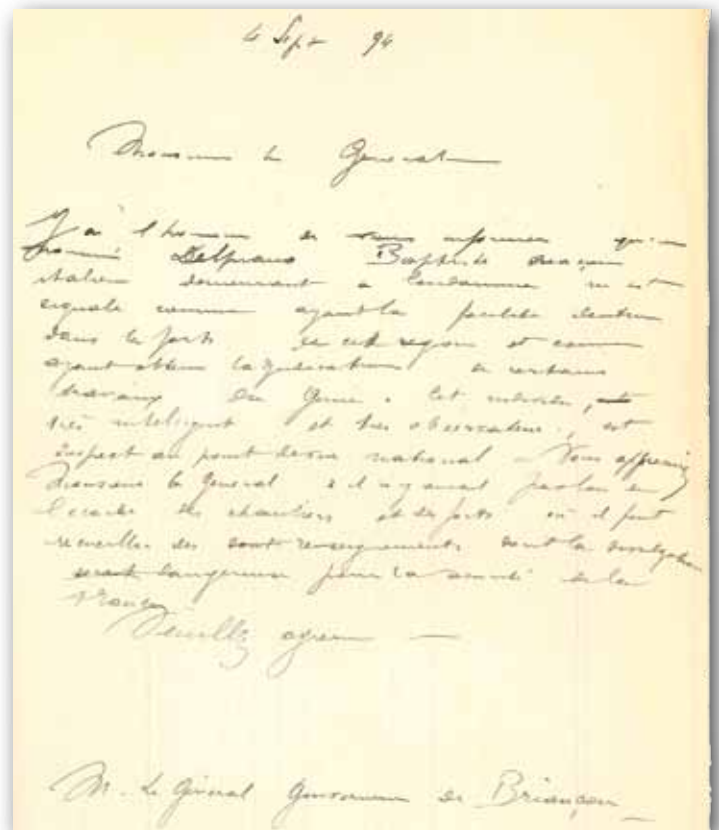 4 Sept 94
Monsieur le Général
J'ai l'honneur de vous informer qu'un
nommé Delprano Baptiste maçon
italien demeurant à me est
signalé comme ayant la facilité d'entrer
dans les forts de cette région et comme
ayant obtenu l'adjudication de certains
travaux du Génie. Cet individu,
très intelligent et très observateur, est
suspect au point de vue national. Vous
Monsieur le Général s'il n'y aurait pas lieu de
l'écarter des chantiers et des forts où il peut
recueillir des renseignements dont la divulgation
serait dangereuse pour la sécurité de la
France
Veuillez agréer —
M. le Général Gouverneur de Briançon